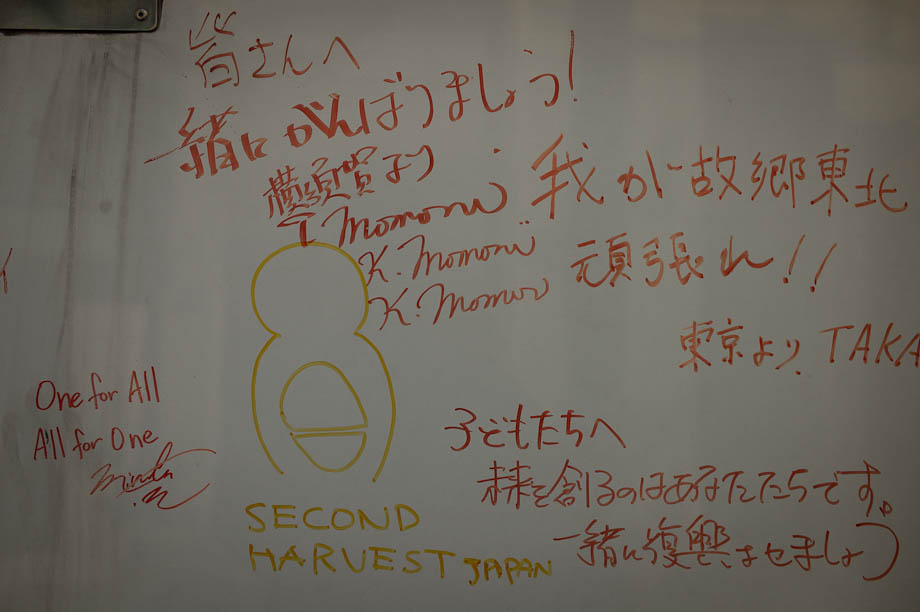 皆さんへ
一緒にがんばりましょう!
横須賀より
T Momoru
K. Momoni
K. Momor
我が故郷東北
頑張れ!!
東京より、TAKA
One for All
All for One
子どもたちへ
未来を創るのはあなたたちです。
一緒に復興させましょう
SECOND
HARVEST JAPAN